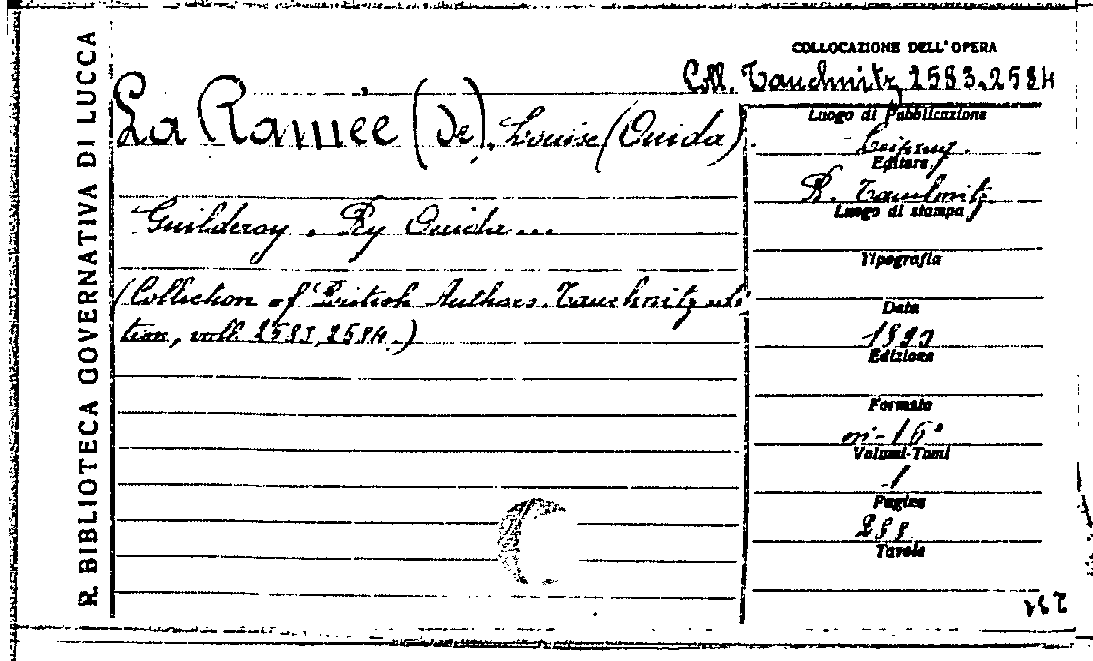 R. BIBLIOTECA GOVERNATIVA DI LUCCA
COLLOCAZIONE DELL'OPERA
Coll. Tauchnitz 2583.2584
La Ramée (De), Louise (Ouida).
Guilderoy. By Ouida...
(Collection of British Authors. Tauchnitz edi
tion, voll. 2583, 2584.)
Luogo di Pubblicazione
Leipzig.
Editore
B. Tauchnitz
Luogo di stampa
Tipografia
Data
Edizione
Formato
in-16°
Volumi-Tomi
1
Pagine
Tavole